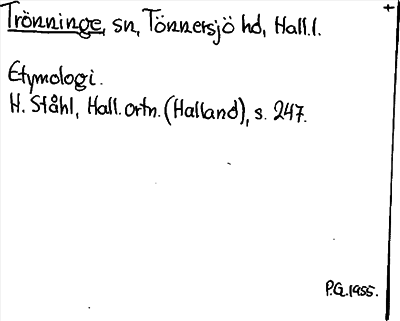 Trönninge, sn, Tönnersjö hd, Hall.l.
Etymologi.
H. Ståhl, Hall. ortn. (Halland), s. 247.
P.G. 1955.